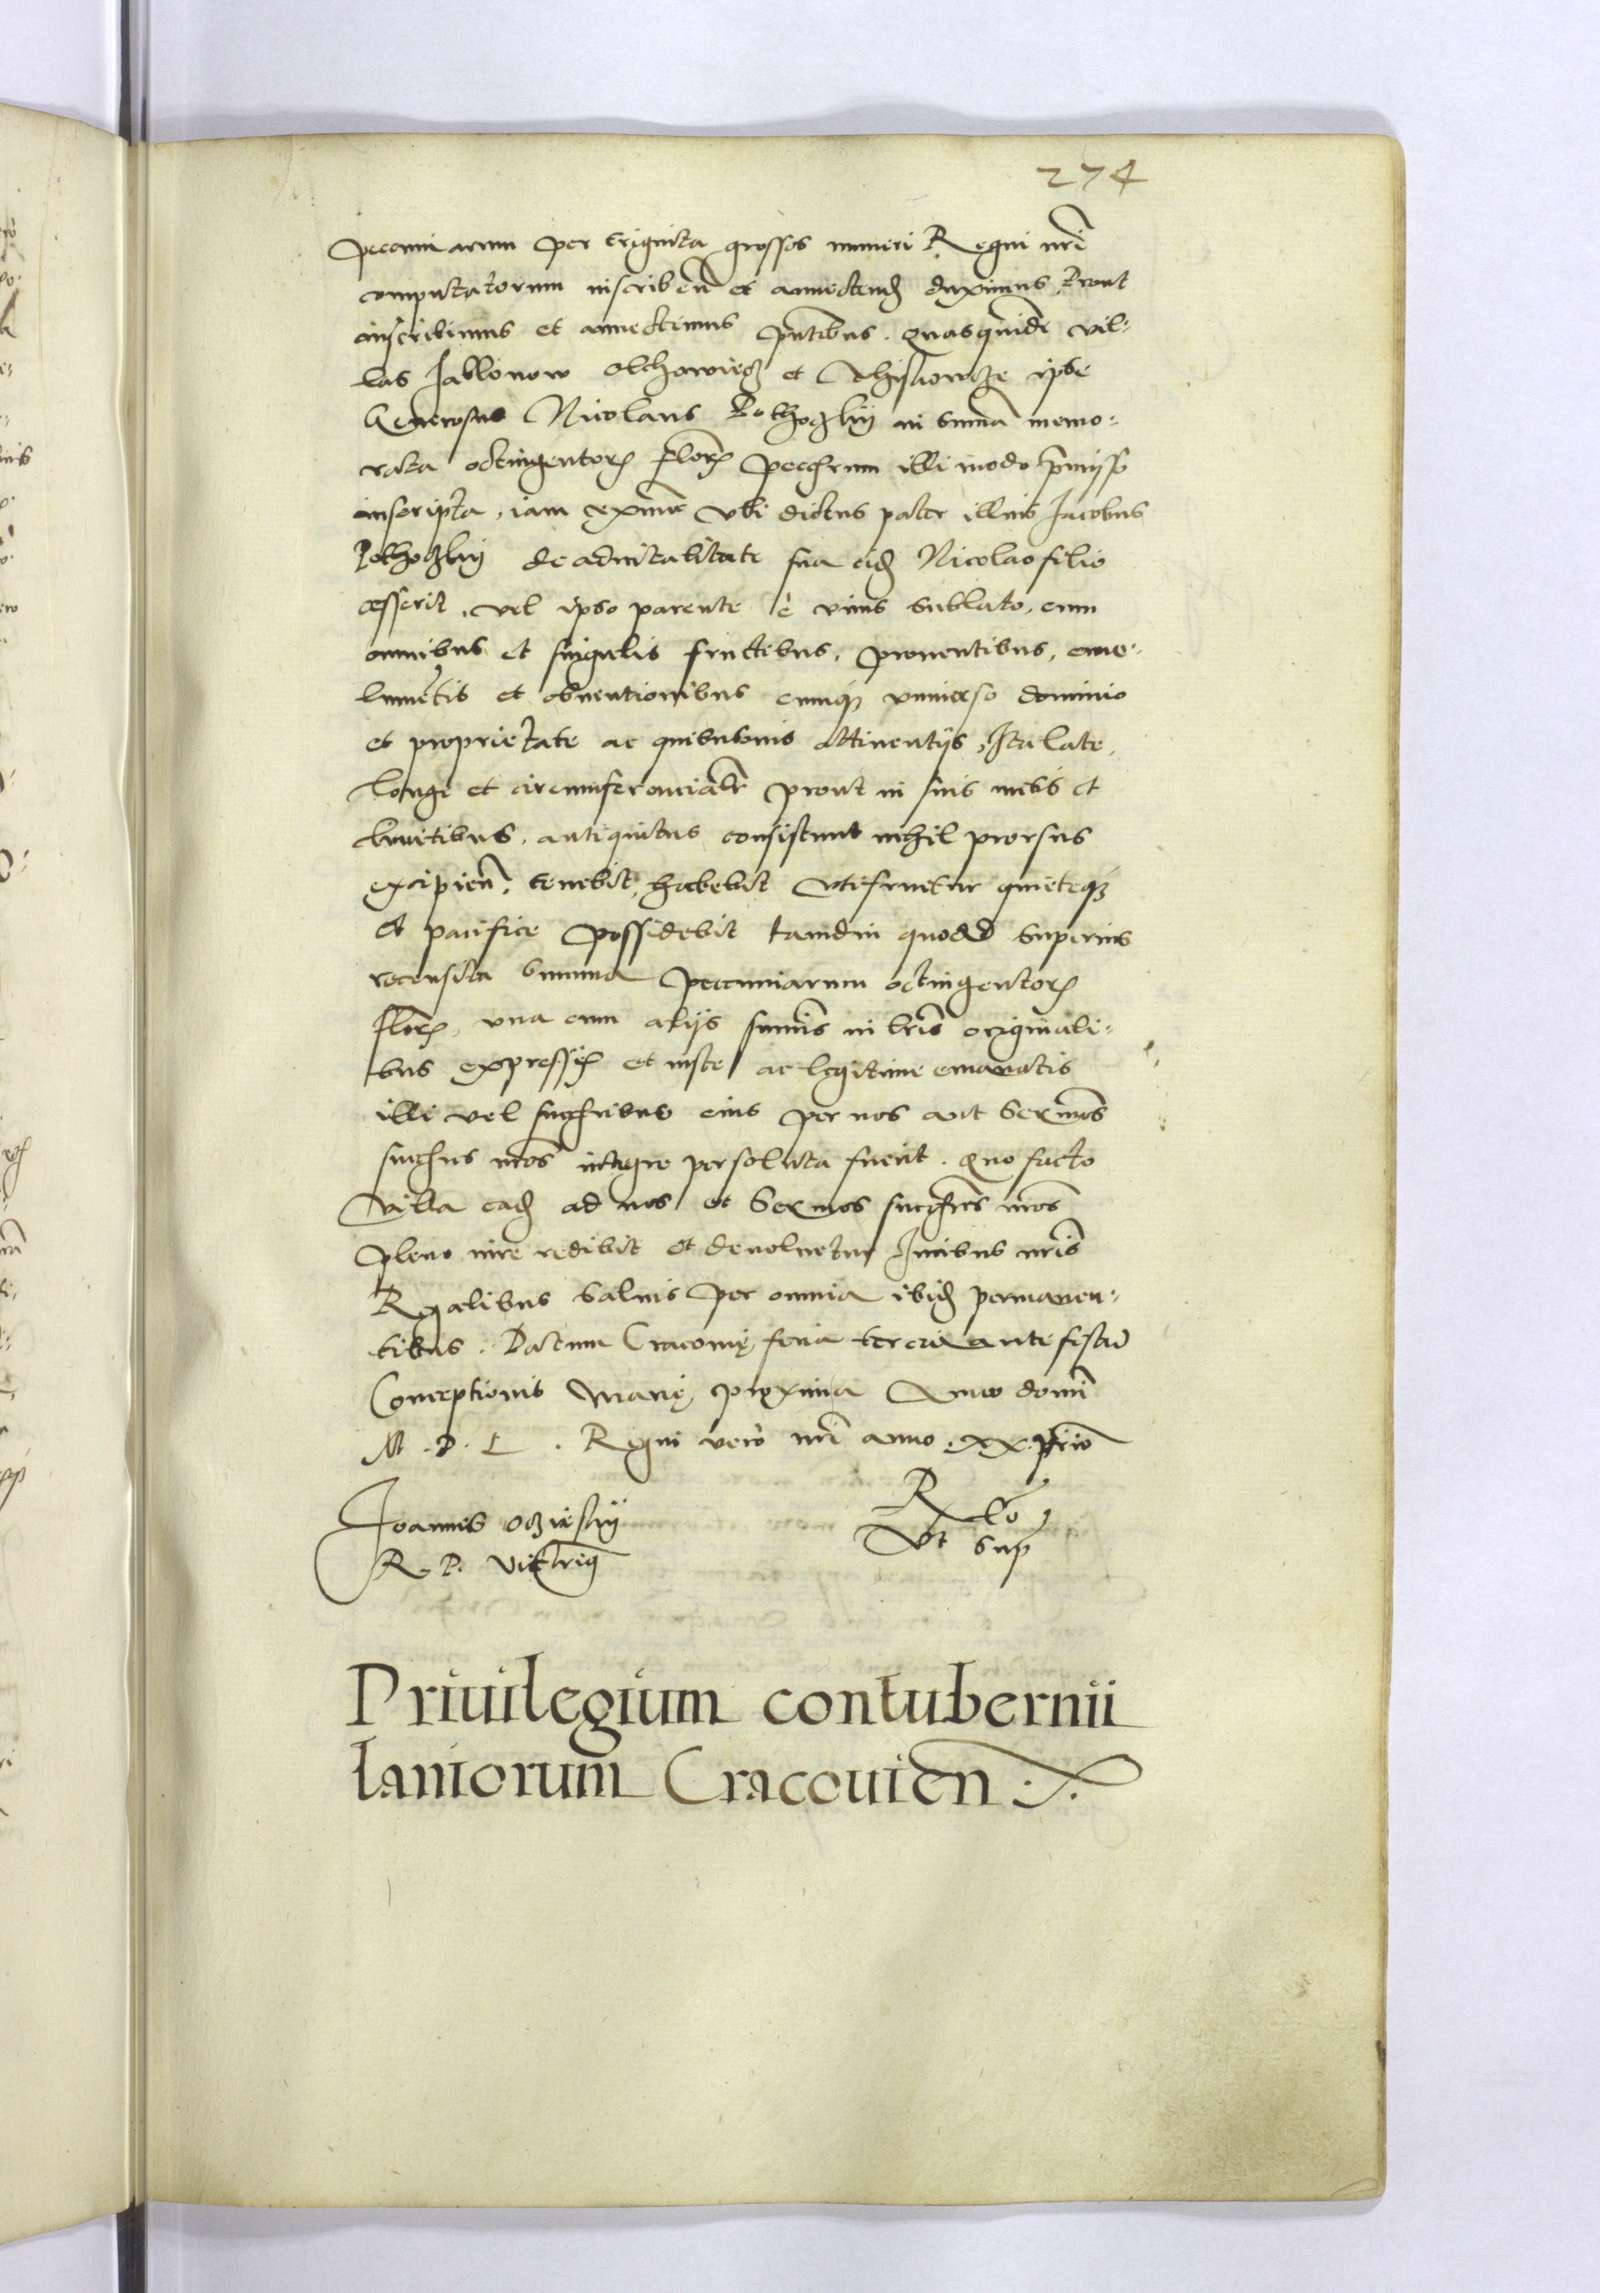 274
pecuniarum per triginta grossos numeri Regni nri
computatorum inscriben et annectend duximus, Prout
inscribimus et annectimus pntibus. Quasquide vil-
las Jablonow Olchowiecz et ipse
Generosus Nicolaus Pothoczky in suma memo-
rata octingentor flor pecuarum illi modo pmisso
inscripta, iam exnunc vbi dictus pater illius Jacobus
Pothoczky de aduitalitate sua eid Nicolao filio
cesserit, vel ipso parente è viuis sublato, cum
omnibus et singulis fructibus, prouentibus, emo-
lumetis et obuentionibus cumq vniuerso dominio
et proprietate ac quibusuis attinentijs, Ita late,
longe et circumferencialr prout in suis metis et
limitibus antiquitus consistunt nihil prorsus
excipien, tenebit, habebit vtifruetur quieteq
et pacifice possidebit tamdiu quoad superius
recensita summa pecuniarum octingentor
flor, vna cum alijs sumis in lris originali-
bus expressis et iuste ac legitime emanatis
illi vel succribus eius per nos aut Sermos
succres nros integre persoluta fuerit. Quo facto
Villa ead ad nos et Sermos succres nros
pleno iure redibit et deuoluetur Juribus nris
Regalibus saluis per omnia ibid permanen-
tibus. Datum Cracouię feria tercia ante festu
Conceptionis Marię proxima Anno domi
M. D. L. Regni vero nri anno xx primo
Joannes Oczieskij
R. P. Vicecrius
Rlo
Vt sup
Priuilegium contubernii
laniorum Cracouien.